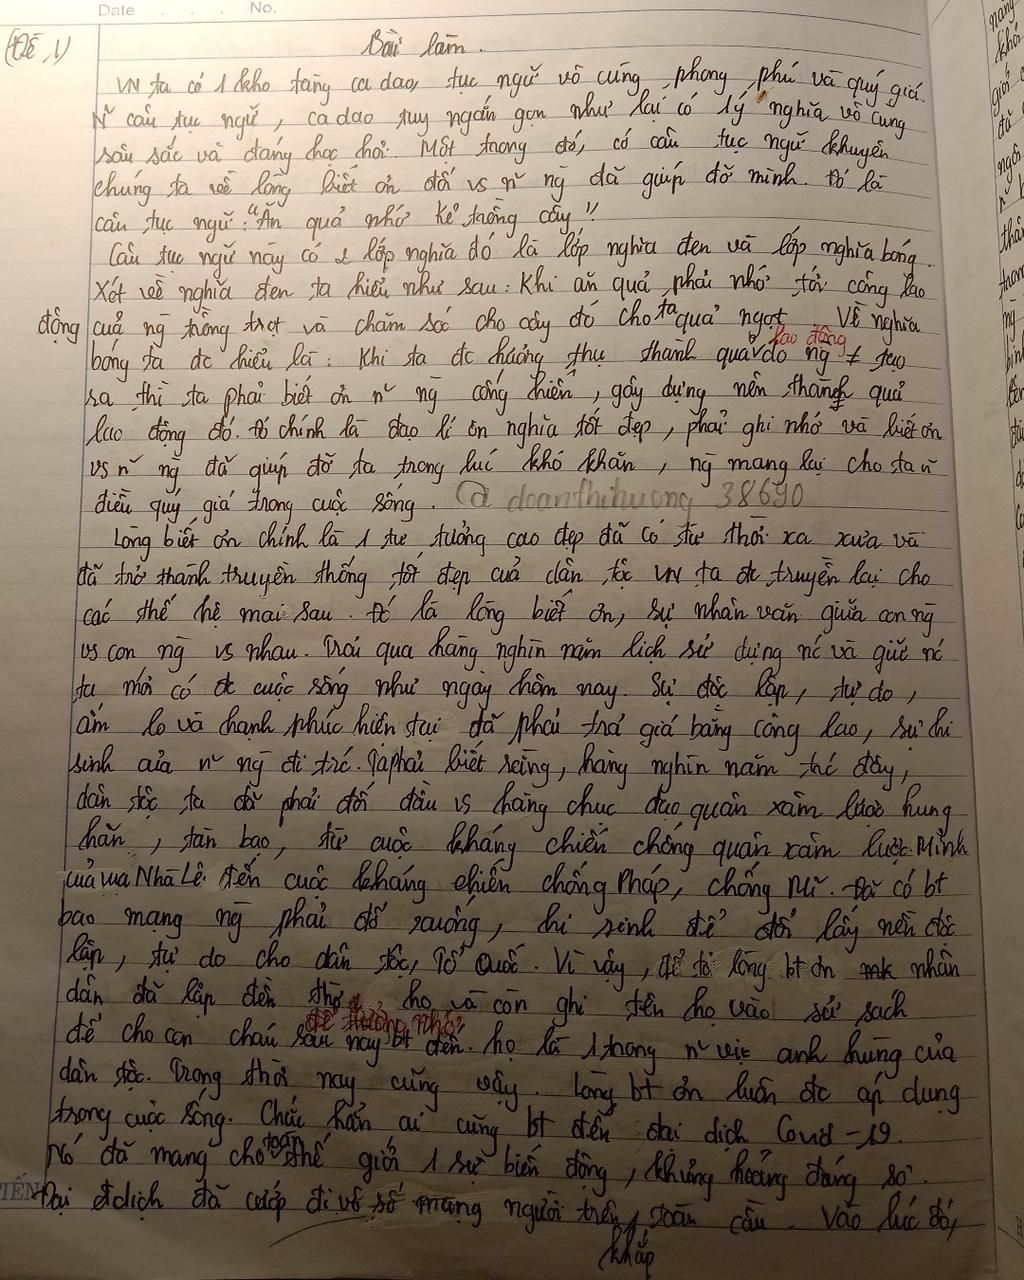 Date . . . No.
(Đề 1)
Bài làm.
VN ta có 1 kho tàng ca dao, tục ngữ vô cùng phong phú và quý giá.
N~ câu tục ngữ, ca dao tuy ngắn gọn như lại có 1 ý nghĩa vô cùng
sâu sắc và đáng học hỏi. Một trong đó, có câu tục ngữ khuyên
chúng ta về lòng biết ơn đối vs n~ ng đã giúp đỡ mình. Đó là
câu tục ngữ: "Ăn quả nhớ kẻ trồng cây".
Câu tục ngữ này có 2 lớp nghĩa đó là lớp nghĩa đen và lớp nghĩa bóng.
Xét về nghĩa đen ta hiểu như sau: Khi ăn quả, phải nhớ tới công lao
động của ng trồng trọt và chăm sóc cho cây đó cho ta quả ngọt. Về nghĩa
bóng ta đc hiểu là: Khi ta đc hưởng thụ thành quả lao động do ng ≠ tạo
ra thì ta phải biết ơn n~ ng cống hiến, gây dựng nên thành quả
lao động đó. Đó chính là đạo lí ơn nghĩa tốt đẹp, phải ghi nhớ và biết ơn
vs n~ ng đã giúp đỡ ta trong lúc khó khăn, ng mang lại cho ta n~
điều quý giá trong cuộc sống. @doanthihuong38690
Lòng biết ơn chính là 1 tư tưởng cao đẹp đã có từ thời xa xưa và
đã trở thành truyền thống tốt đẹp của dân tộc VN ta đc truyền lại cho
các thế hệ mai sau. Đó là lòng biết ơn, sự nhân văn giữa con ng
vs con ng vs nhau. Trải qua hàng nghìn năm lịch sử dựng nc và giữ nc
ta mới có đc cuộc sống như ngày hôm nay. Sự độc lập, tự do,
ấm lo và hạnh phúc hiện tại đã phải trả giá bằng công lao, sự hi
sinh của n~ ng đi trc. Ta phải biết rằng, hàng nghìn năm trc đây,
dân tộc ta đã phải đối đầu vs hàng chục đạo quân xâm lược hung
hãn, tàn bạo, từ cuộc kháng chiến chống quân xâm lược Minh
của vua Nhà Lê đến cuộc kháng chiến chống Pháp, chống Mĩ. Đã có bt
bao mạng ng phải đổ xuống, hi sinh để đổi lấy nền độc
lập, tự do cho dân tộc, Tổ Quốc. Vì vậy, để tỏ lòng bt ơn nhân
dân đã lập đền thờ họ và còn ghi tên họ vào sử sách để tưởng nhớ,
để cho con cháu sau này bt đến họ là 1 trong n~ vị anh hùng của
dân tộc. Trong thời nay cũng vậy. Lòng bt ơn luôn đc áp dụng
trong cuộc sống. Chắc hẳn ai cũng bt đến đại dịch Covid-19.
Nó đã mang cho toàn thế giới 1 sự biến động, khủng hoảng đáng sợ.
Đại dịch đã cướp đi vô số mạng người trên khắp toàn cầu. Vào lúc đó,